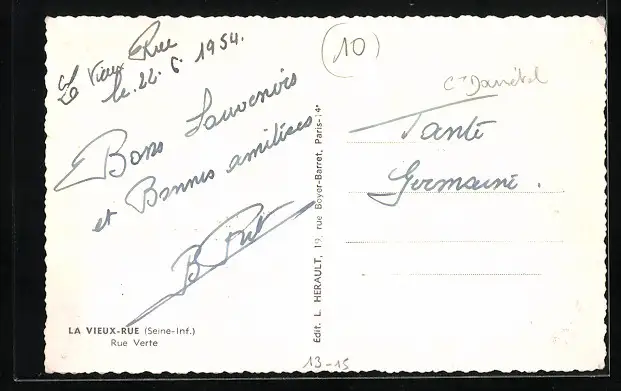 La Vieux Rue
le 22. 6. 1954.
Bons Souvenirs
et Bonnes amitiées
(10)
Tante
Germaine.
LA VIEUX-RUE (Seine-Inf.)
Rue Verte
Édit. L. HERAULT, 19, rue Boyer-Barret, Paris-14e
13-15